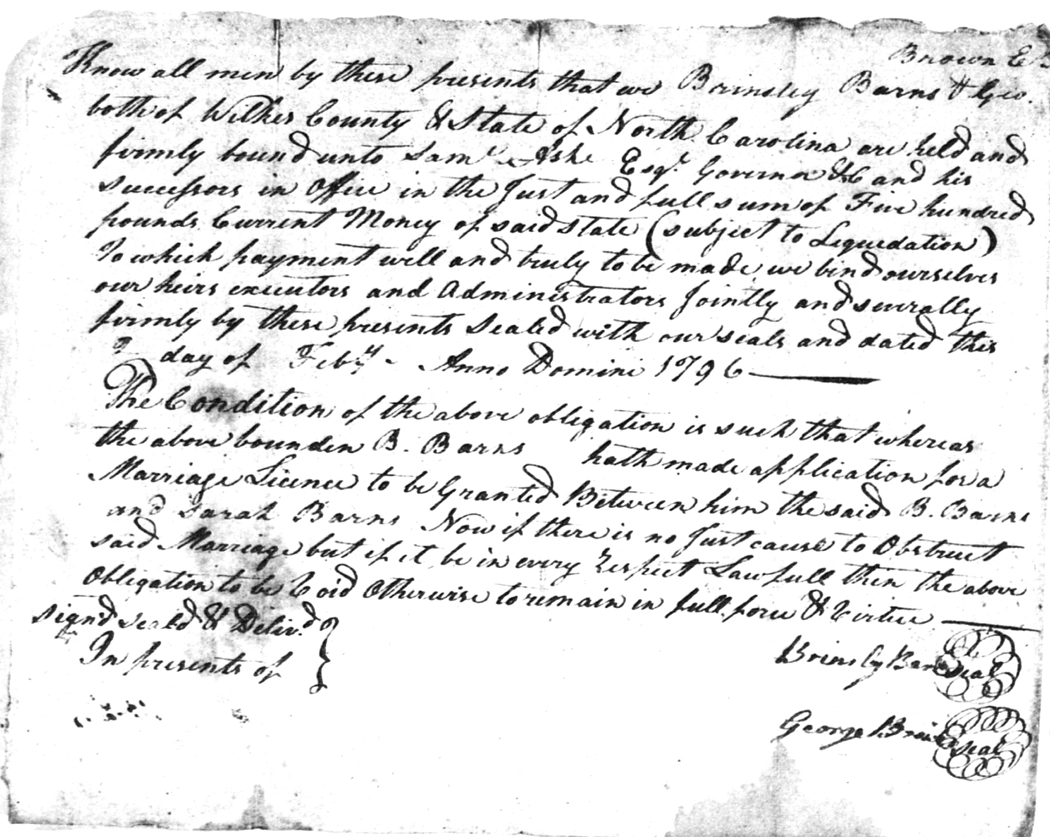 Brown
Know all men by these presents that we Brinsley Barns & Geo.
both of Wilkes County & State of North Carolina are held and
firmly bound unto Saml. Ashe Esqr. Governor &c and his
successors in office in the Just and full sum of Five hundred
pounds Current Money of said state (subject to Liquedation)
To which payment well and truly to be made we bind ourselves
our heirs executors and Administrators Jointly and severally
firmly by these presents Sealed with our seals and dated this
day of Feby. Anno Domini 1796
The Condition of the above obligation is such that whereas
the above bounden B. Barns hath made application for a
Marriage Licence to be Granted Between him the said B. Barns
and Sarah Barns Now if there is no Just cause to Obstruct
said Marriage but if it be in every respect Lawfull then the above
Obligation to be Void Otherwise to remain in full force & Virtue
Signd seald & Delivd
In presents of
Brinsly Barns seal
George seal